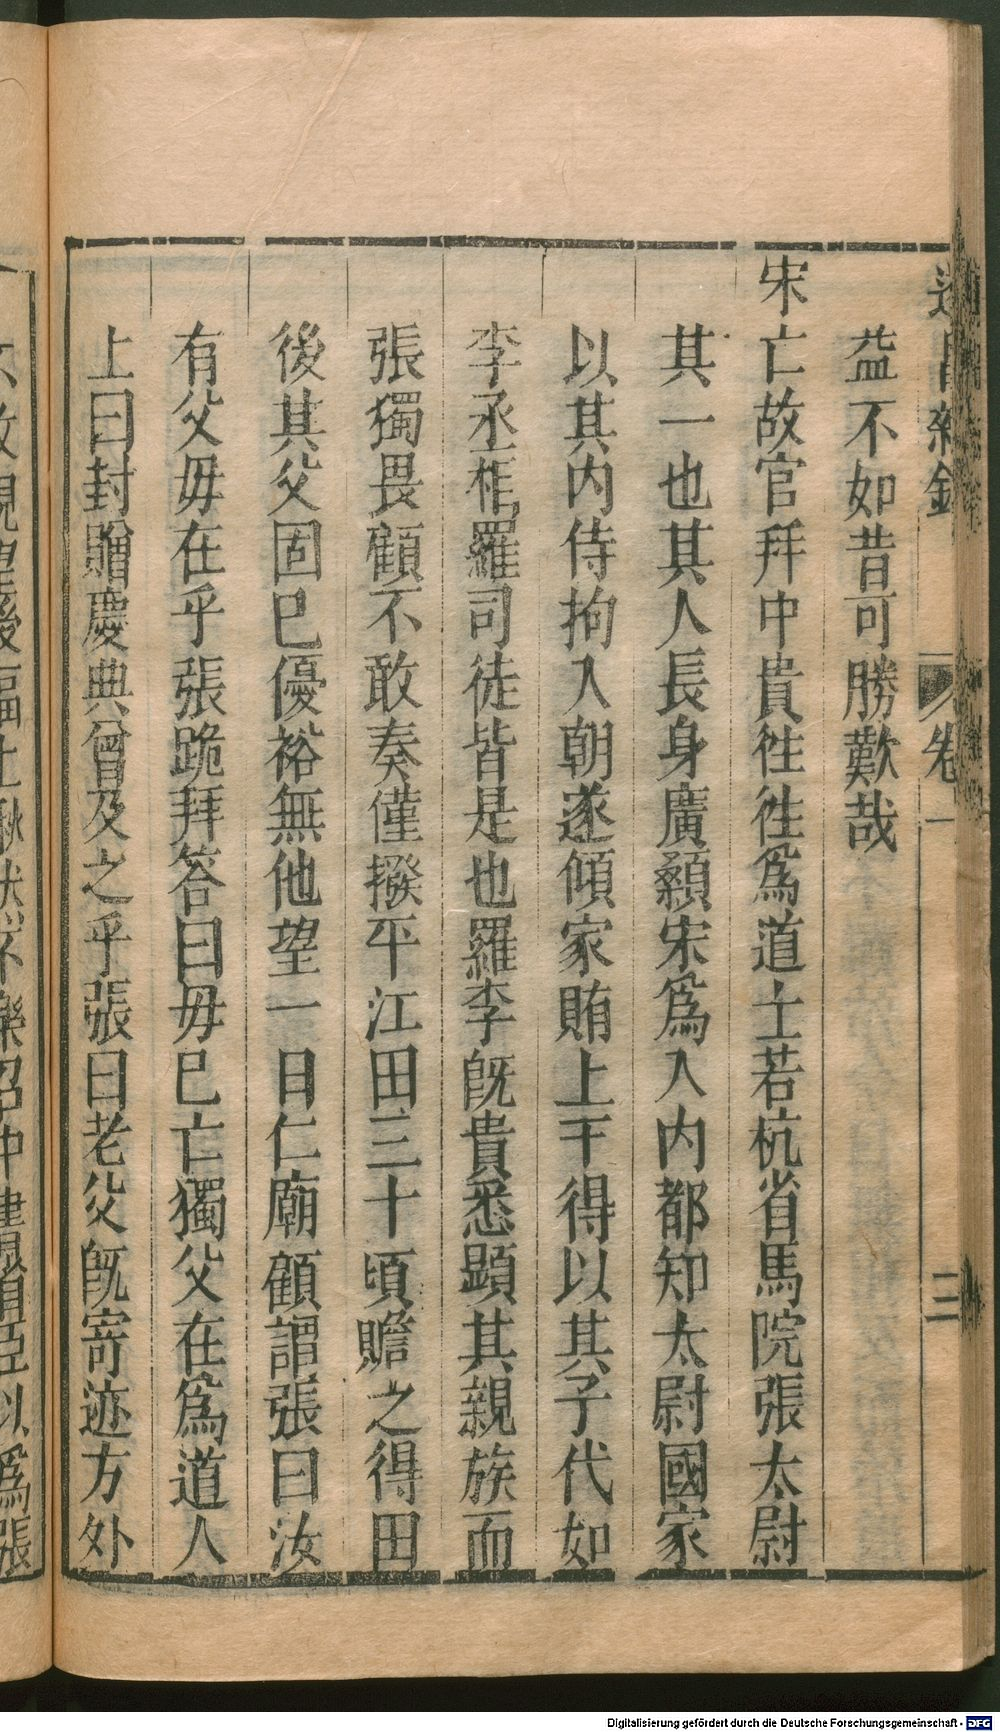 益不如昔可勝歎哉
宋亡故官拜中貴徃徃爲道士若杭省馬院張太尉
其一也其人長身廣顙宋爲入内都知太尉國家
以其内侍拘入朝遂傾家賄上干得以其子代如
李丞相羅司徒皆是也羅李旣貴悉顯其親族而
張獨畏顧不敢奏僅撥平江田三十頃贍之得田
後其父固已優裕無他望一日仁廟顧謂張曰汝
有父毋在乎張跪拜答曰毋已亡獨父在爲道人
上曰封贈慶典曾及之乎張曰老父旣寄迹方外
卷一
三
Digitalisierung gefördert durch die Deutsche Forschungsgemeinschaft - DFG